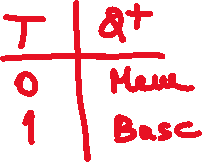 T Q+
0 Mem
1 Basc